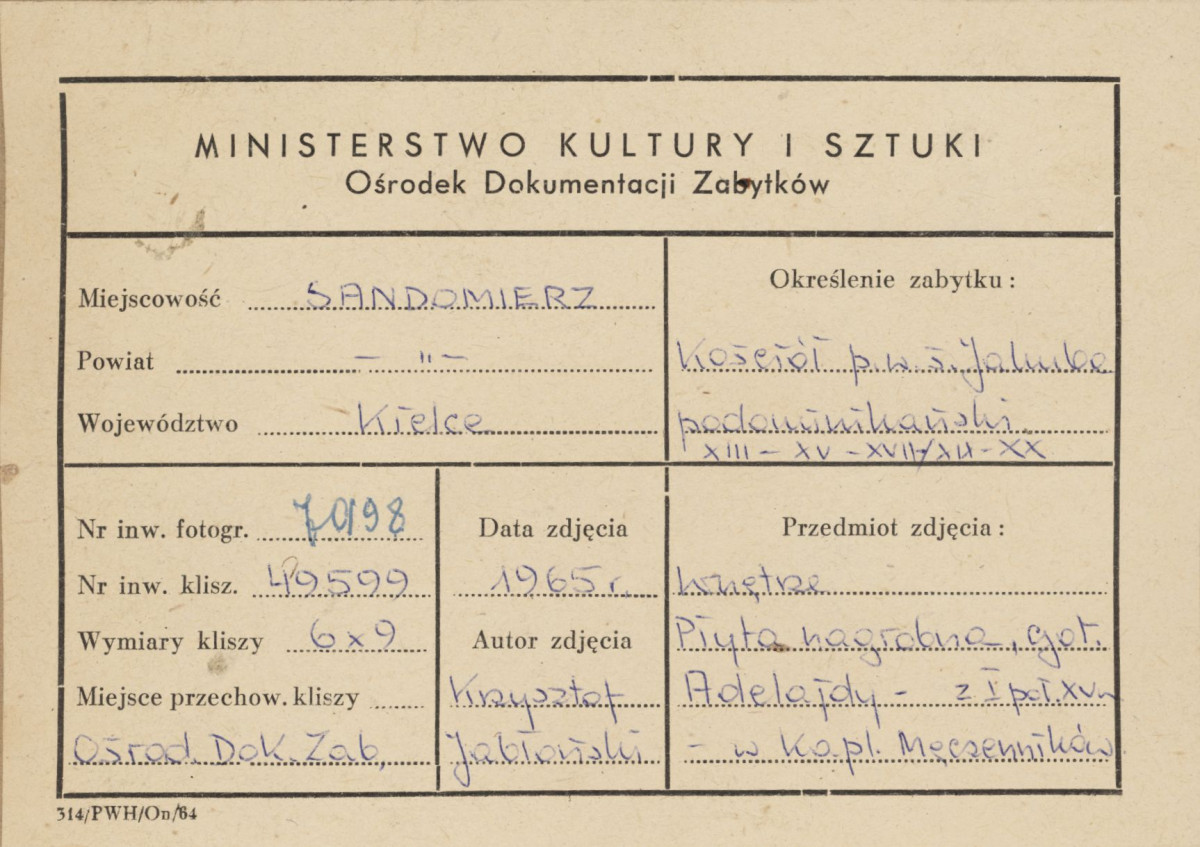 MINISTERSTWO KULTURY I SZTUKI
Ośrodek Dokumentacji Zabytków
Miejscowość SANDOMIERZ
Powiat — „ —
Województwo Kielce
Określenie zabytku:
Kościół p.w. ś. Jakuba
podominikański
XIII – XV – XVII/XIX – XX
Nr inw. fotogr. 7098
Nr inw. klisz. 49599
Wymiary kliszy 6 x 9
Miejsce przechow. kliszy
Ośrod. Dok. Zab.
Data zdjęcia
1965 r.
Autor zdjęcia
Krzysztof
Jabłoński
Przedmiot zdjęcia:
Wnętrze
Płyta nagrobna, got.
Adelajdy – z I poł. XV w
– w Kapl. Męczenników
314/PWH/On/64